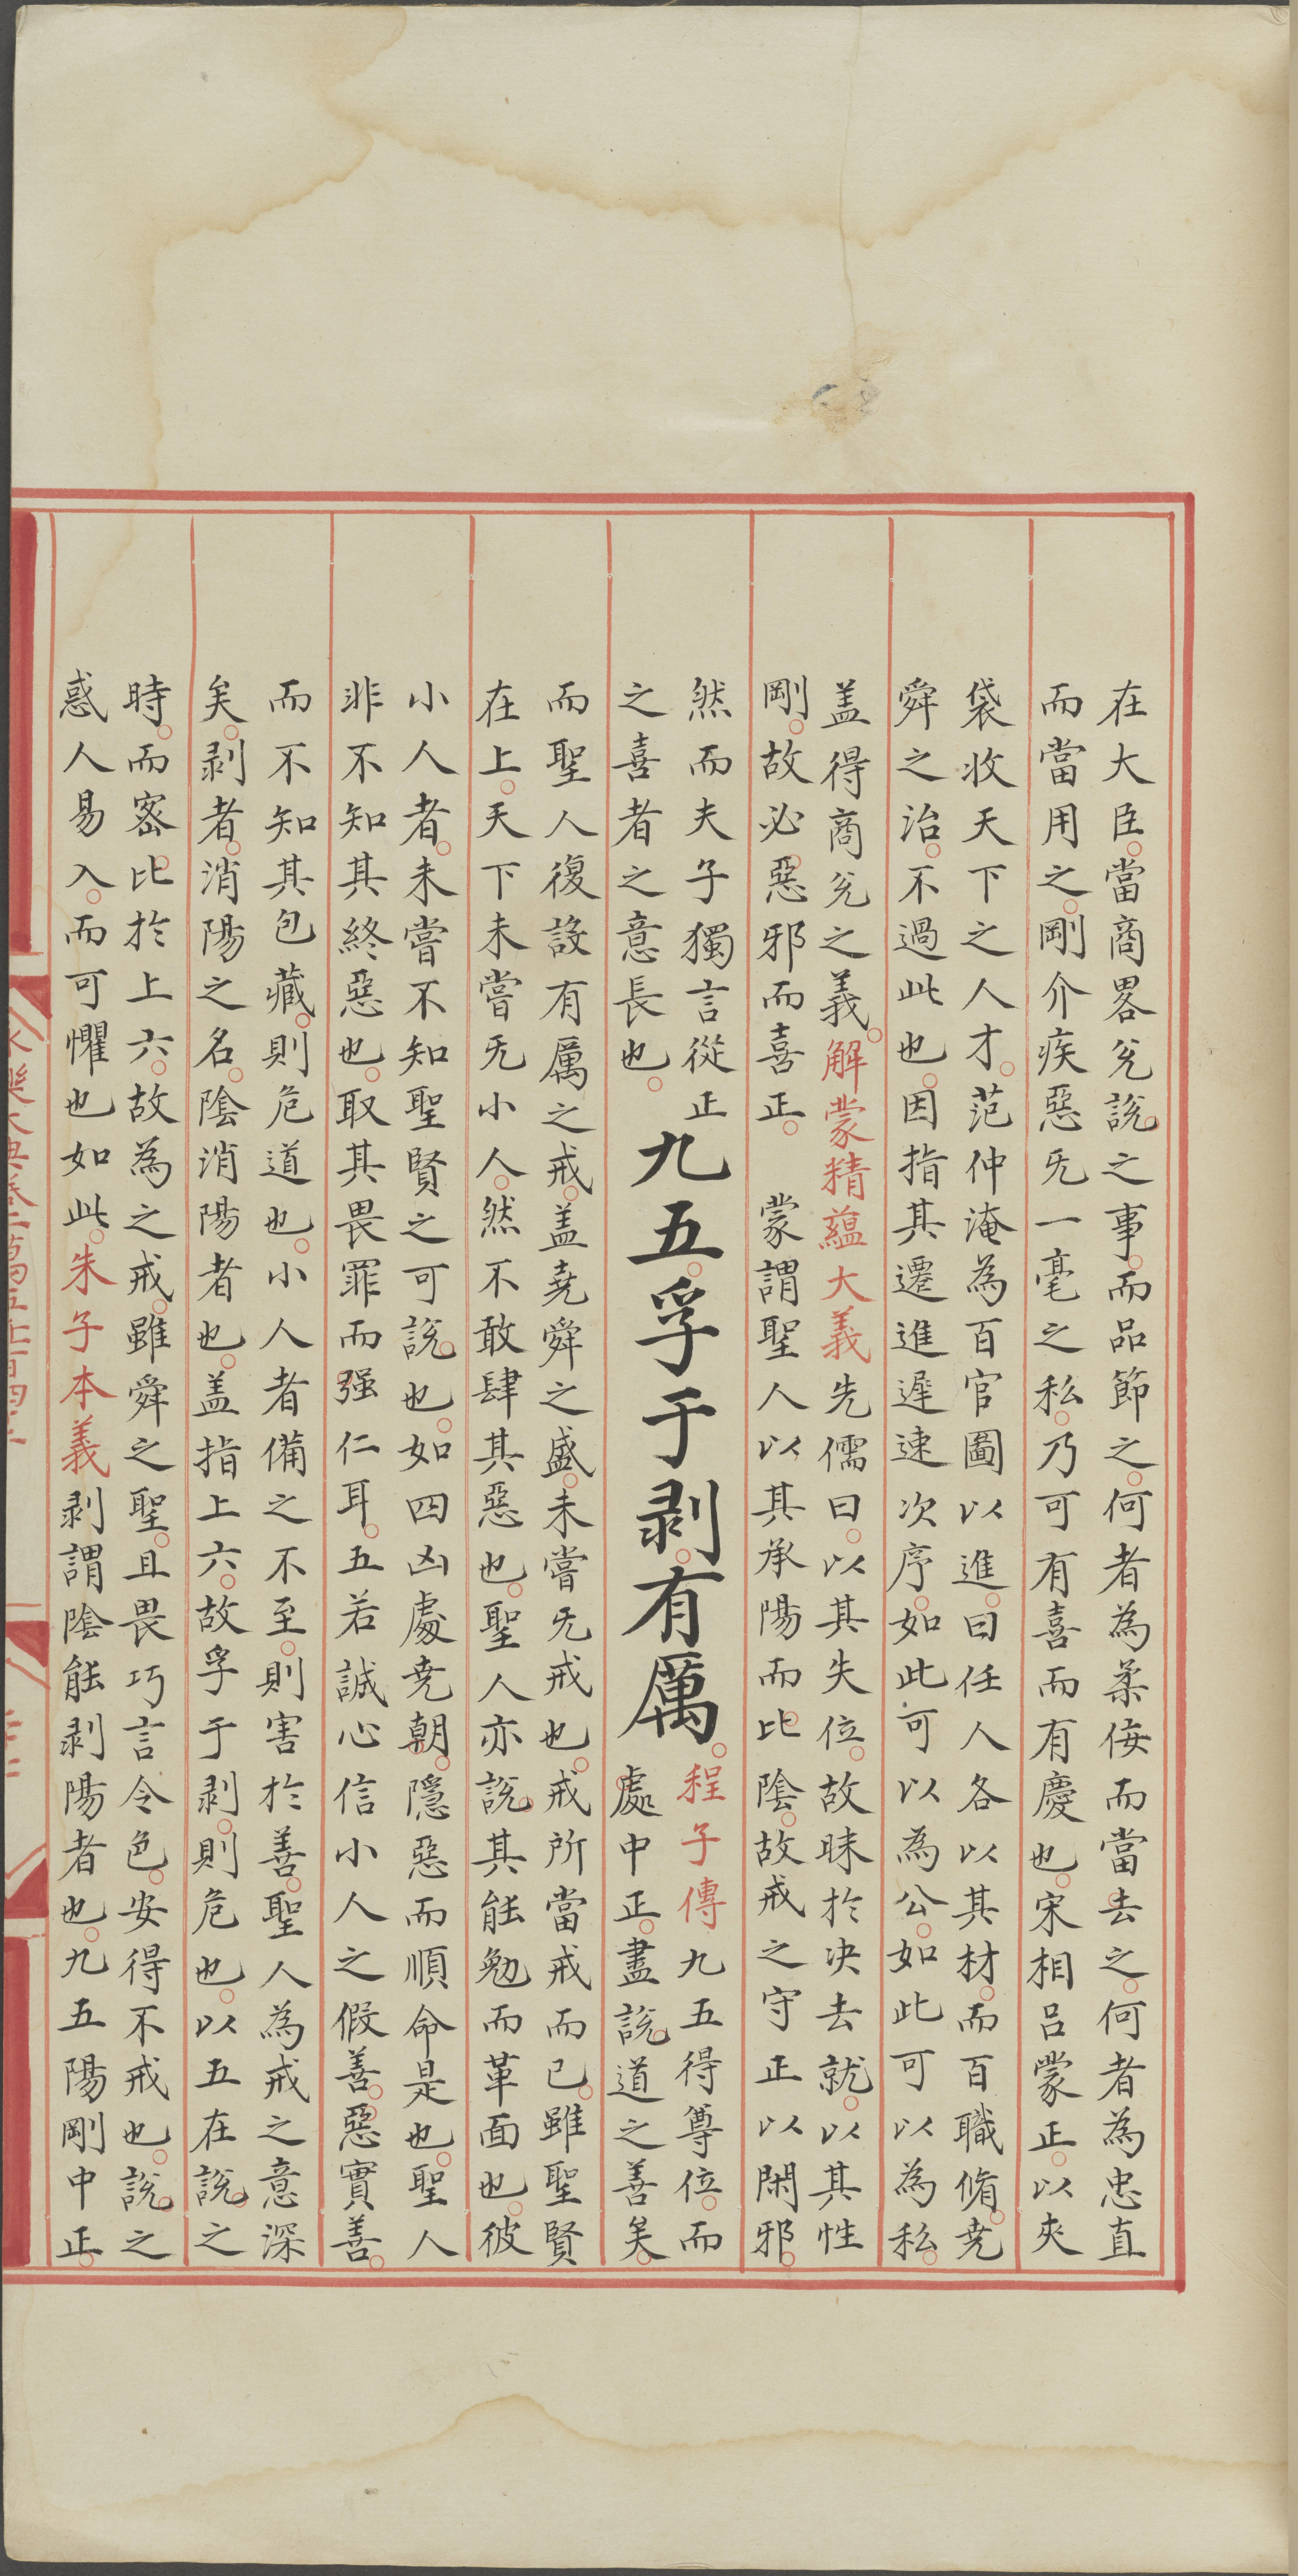 在大臣當商畧兊說之事而品節之何者為柔侫而當去之何者為忠直
而當用之剛介疾惡旡一毫之私乃可有喜而有慶也宋相呂蒙正以夾
袋收天下之人才范仲淹為百官圖以進曰任人各以其材而百職脩堯
舜之治不過此也因指其遷進遲速次序如此可以為公如此可以為私
盖得商兊之義解蒙精蘊大義先儒曰以其失位故昧於决去就以其性
剛故必惡邪而喜正 蒙謂聖人以其承陽而比陰故戒之守正以閑邪
然而夫子獨言從正
之喜者之意長也
九五孚于剥有厲
程子傳九五得尊位而
處中正盡說道之善矣
而聖人復設有厲之戒盖堯舜之盛未嘗旡戒也戒所當戒而已雖聖賢
在上天下未嘗旡小人然不敢肆其惡也聖人亦說其能勉而革面也彼
小人者未嘗不知聖賢之可說也如四凶處堯朝隱惡而順命是也聖人
非不知其終惡也取其畏罪而强仁耳五若誠心信小人之假善惡實善
而不知其包藏則危道也小人者備之不至則害於善聖人為戒之意深
矣剥者消陽之名陰消陽者也盖指上六故孚于剥則危也以五在說之
時而宻比於上六故為之戒雖舜之聖且畏巧言令色安得不戒也說之
惑人易入而可懼也如此朱子本義剥謂陰能剥陽者也九五陽剛中正